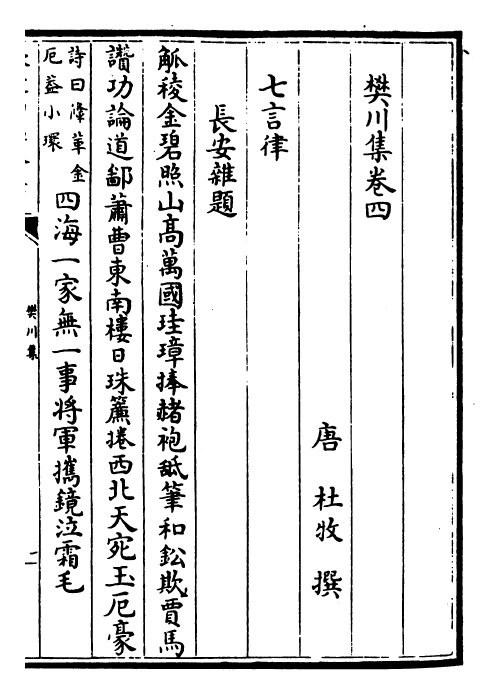 樊川集卷四
唐 杜牧 撰
七言律
長安雜題
觚稜金碧照山高萬國珪璋捧赭袍舐筆和鉛欺賈馬
讚功論道鄙蕭曹東南樓日珠簾捲西北天宛玉厄豪
詩曰革金
厄蓋小環
四海一家無一事將軍攜鏡泣霜毛
樊川集
二